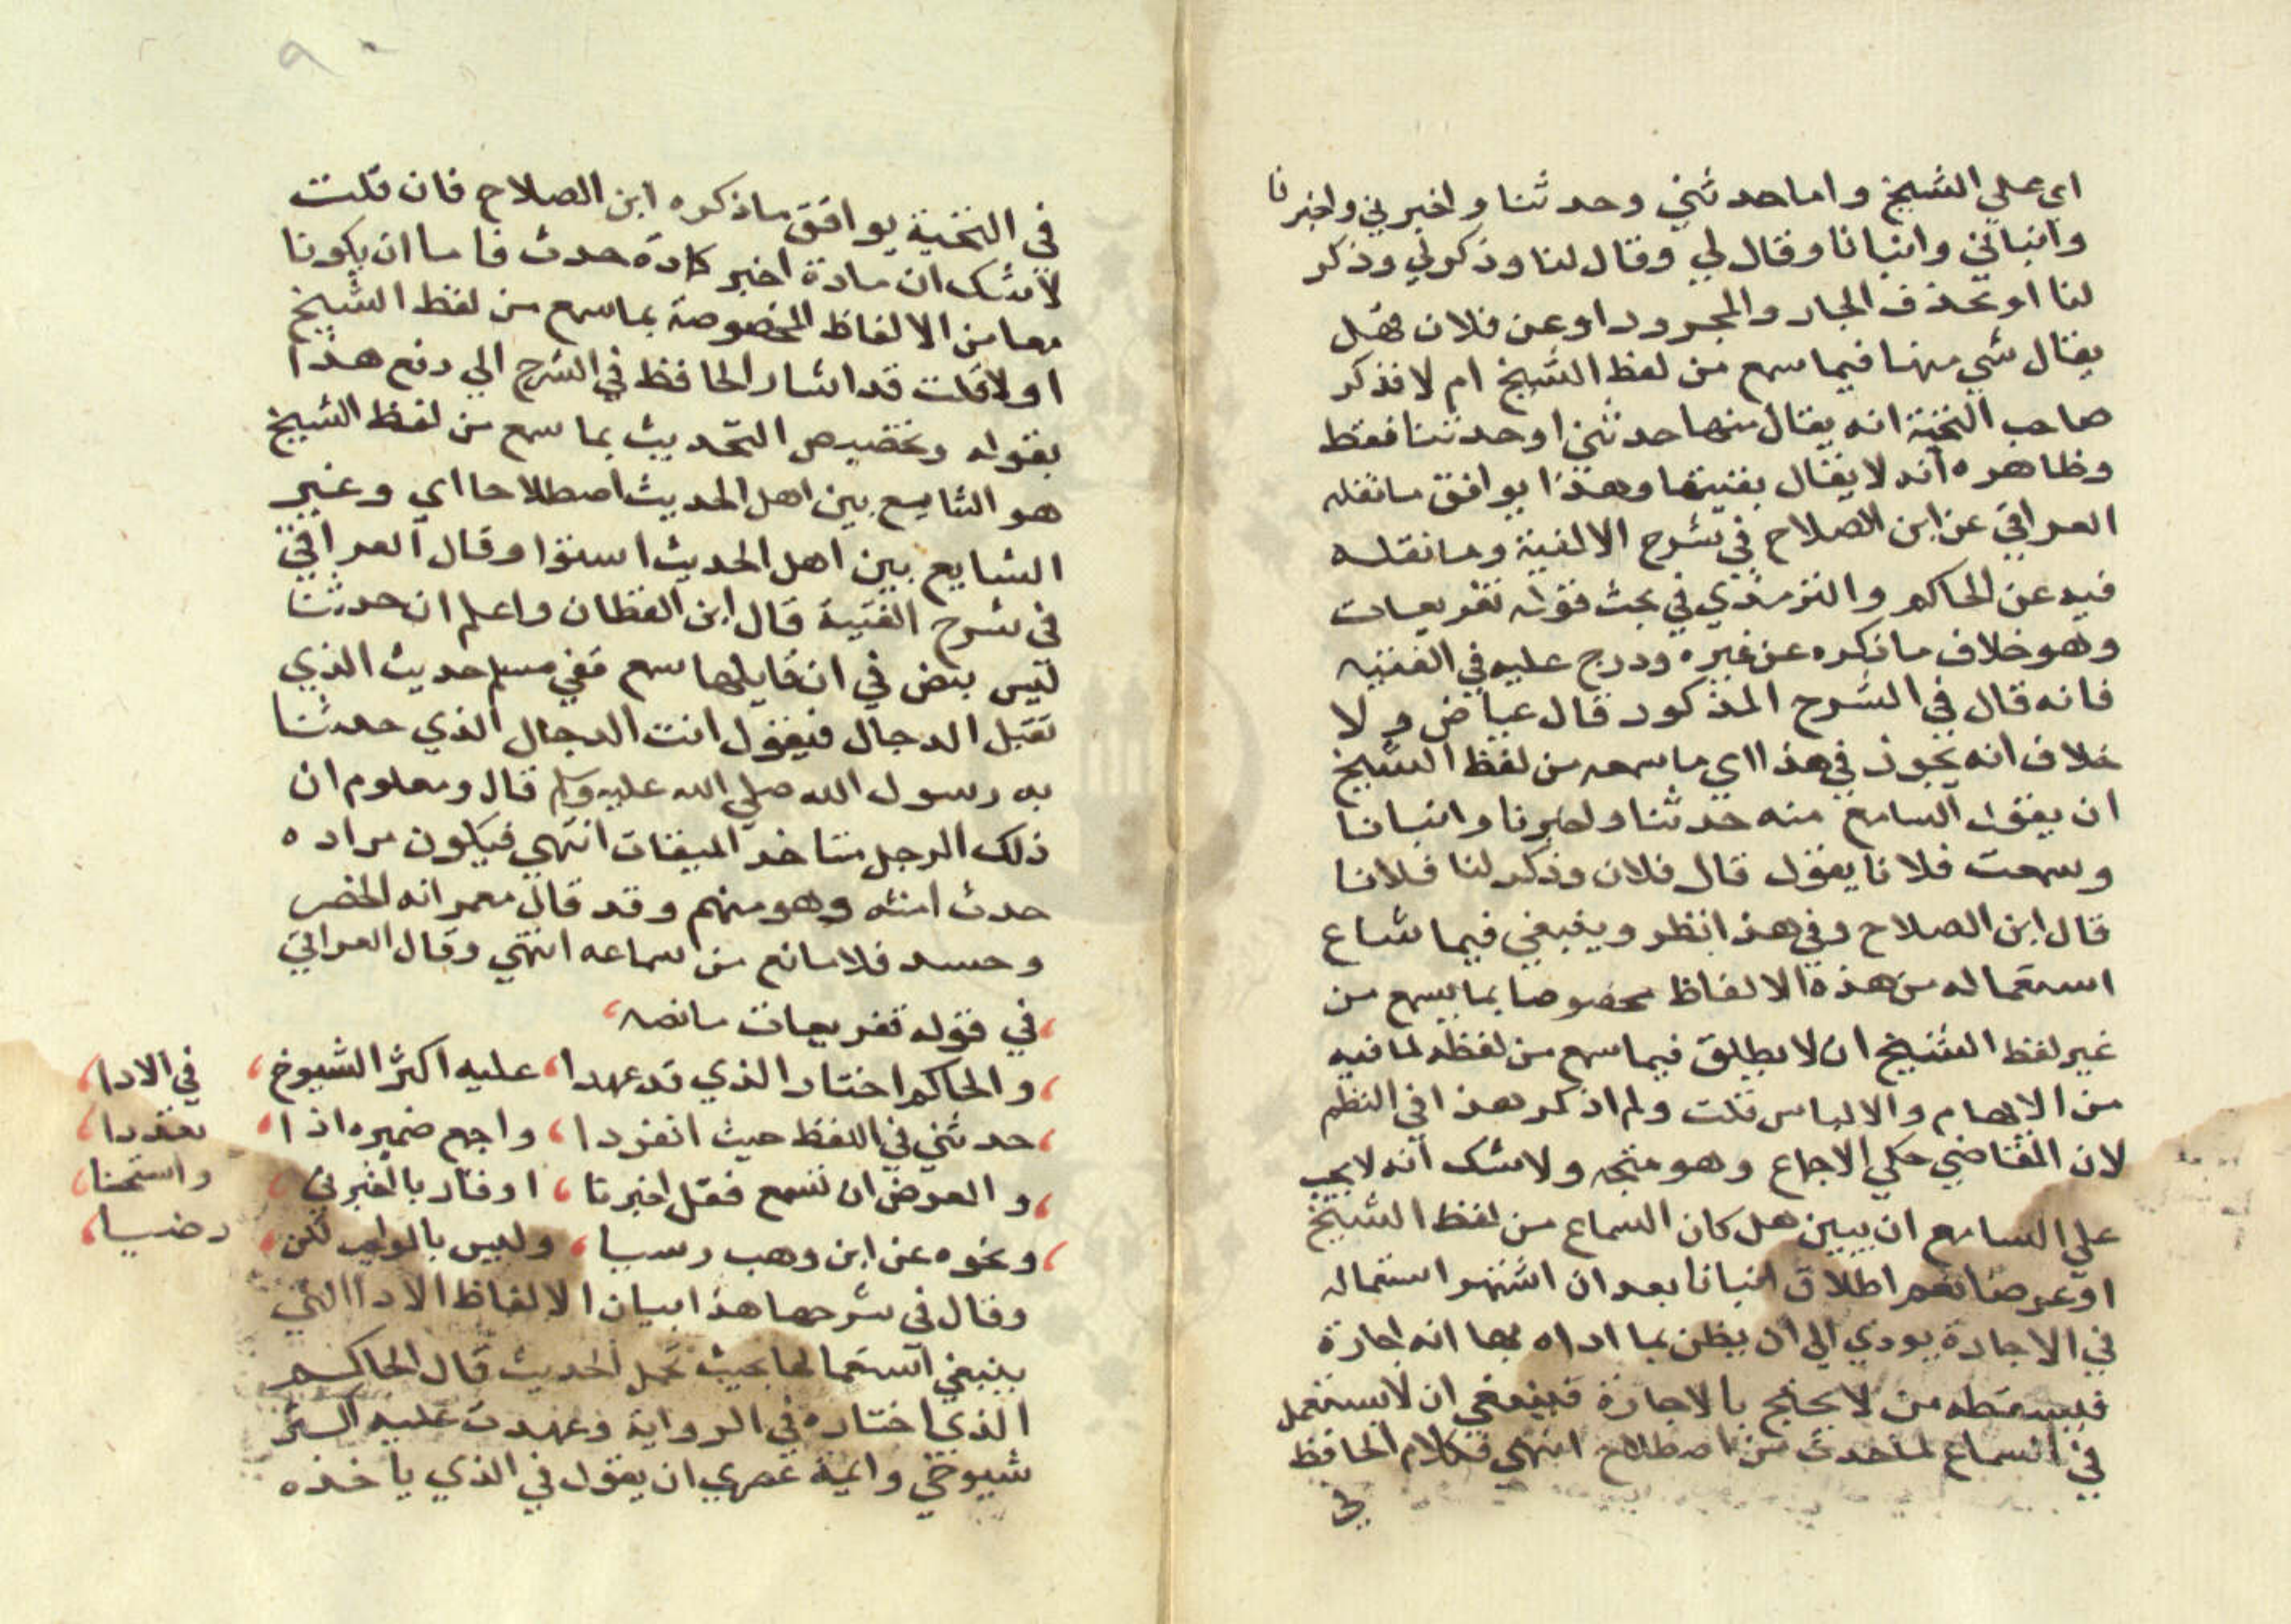 اي علي الشيخ واما حدثني وحدثنا واخبرني واخبرنا
وانباني وانبانا وقال لي وقال لنا وذكر لي وذكر
لنا او بحذف الجار والمجرور او عن فلان فهل
يقال شي منها فيما سمع من لفظ الشيخ ام لا فذكر
صاحب النخبة انه يقال منها حدثني او حدثنا فقط
وظاهره انه لا يقال بقيتها وهذا يوافق ما نقله
العراقي عن ابن الصلاح في شرح الالفية وما نقله
فيه عن الحاكم والترمذي في بحث قوله تفريعات
وهو خلاف ما ذكره عن غيره ودرج عليه في الفيته
فانه قال في الشرح المذكور قال عياض ولا
خلاف انه يجوز في هذا اي ما سمعه من لفظ الشيخ
ان يقول السامع منه حدثنا واخبرنا وانبانا
وسمعت فلانا يقول قال فلان وذكر لنا فلانا
قال ابن الصلاح وفي هذا نظر وينبغي فيما شاع
استعماله من هذه الالفاظ مخصوصا بما يسمع من
غير لفظ الشيخ ان لا يطلق فيما سمع من لفظه لما فيه
من الابهام والالباس قلت ولم اذكر هذا في النظم
لان القاضي حكي الاجماع وهو متجه ولا شك انه لا يجب
علي السامع ان يبين هل كان السماع من لفظ الشيخ
او عرضا نعم اطلاق انبانا بعد ان اشتهر استعماله
في الاجازة يودي الي ان يظن بما اداه بها انه اجازة
فيسقطه من لا يحتج بالاجازة فينبغي ان لا يستعمل
في السماع لما حدث من اصطلاح انتهي فكلام الحافظ
في
٩٠
في النخبة يوافق ما ذكره ابن الصلاح فان قلت
لا شك ان مادة اخبر كمادة حدث فاما ان يكونا
معا من الالفاظ المخصوصة بما سمع من لفظ الشيخ
او لا قلت قد اشار الحافظ في الشرح الي دفع هذا
بقوله وتخصيص التحديث بما سمع من لفظ الشيخ
هو الشايع بين اهل الحديث اصطلاحا اي وغير
الشايع بين اهل الحديث استوا وقال العراقي
في شرح الفيته قال ابن القطان واعلم ان حدثنا
ليس بنص في ان قايلها سمع ففي مسلم حديث الذي
يقتل الدجال فيقول انت الدجال الذي حدثنا
به رسول الله صلي الله عليه وسلم قال ومعلوم ان
ذلك الرجل متاخر الميقات انتهي فيكون مراده
حدث امته وهو منهم وقد قال معمر انه الخضر
وحسد فلا مانع من سماعه انتهي وقال العراقي
في قوله تفريعات ما نصه
والحاكم اختار الذي قد عهدا عليه اكثر الشيوخ في الادا
حدثني في اللفظ حيث انفردا واجمع ضميره اذا تعددا
والعرض ان تسمع فقل اخبرنا او قار بالخبرني واستحسنا
ونحوه عن ابن وهب رسيا وليس بالواجب لكن رضيا
وقال في شرحها هذا بيان الالفاظ الادا التي
ينبغي استعمالها بحيث تحمل الحديث قال الحاكم
الذي اختاره في الرواية وعهدت عليه اكثر
شيوخي وايمة عصري ان يقول في الذي ياخذه